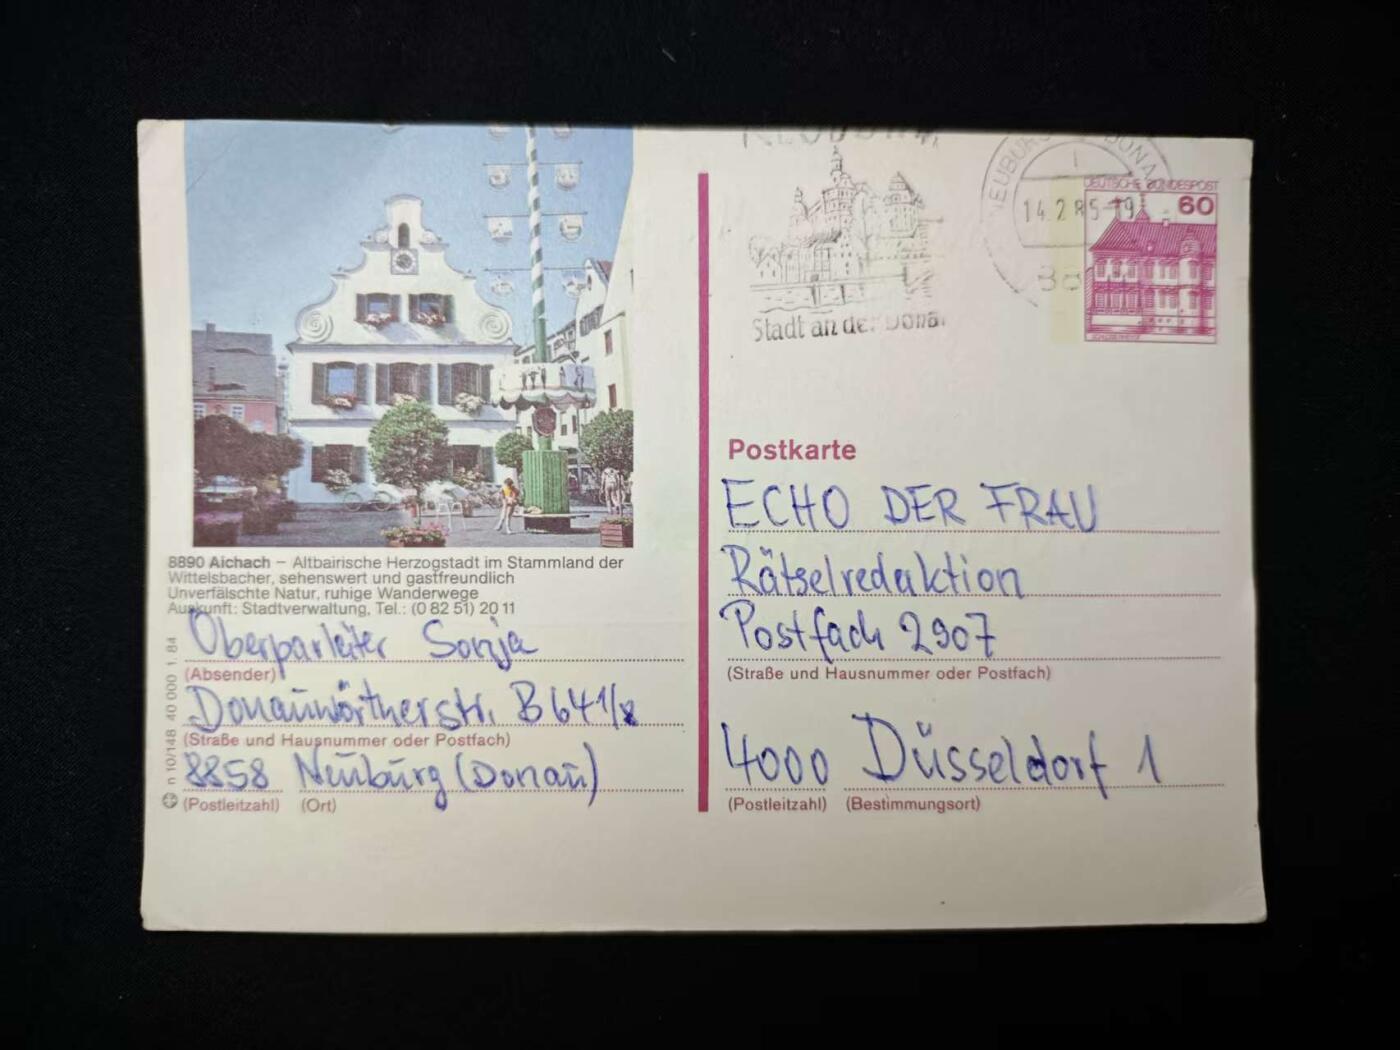 8890 Aichach – Altbairische Herzogstadt im Stammland der
Wittelsbacher, sehenswert und gastfreundlich
Unverfälschte Natur, ruhige Wanderwege
Auskunft: Stadtverwaltung, Tel.: (0 82 51) 20 11
Oberparleiter Sonja
(Absender)
Donauwörtherstr. B 64 1/2
(Straße und Hausnummer oder Postfach)
8858 Neuburg (Donau)
(Postleitzahl) (Ort)
n 10/148 40 000 1. 84
Stadt an der Donau
NEUBURG DONAU
14.2.85-19
DEUTSCHE BUNDESPOST
60
Postkarte
ECHO DER FRAU
Rätselredaktion
Postfach 2907
(Straße und Hausnummer oder Postfach)
4000 Düsseldorf 1
(Postleitzahl) (Bestimmungsort)